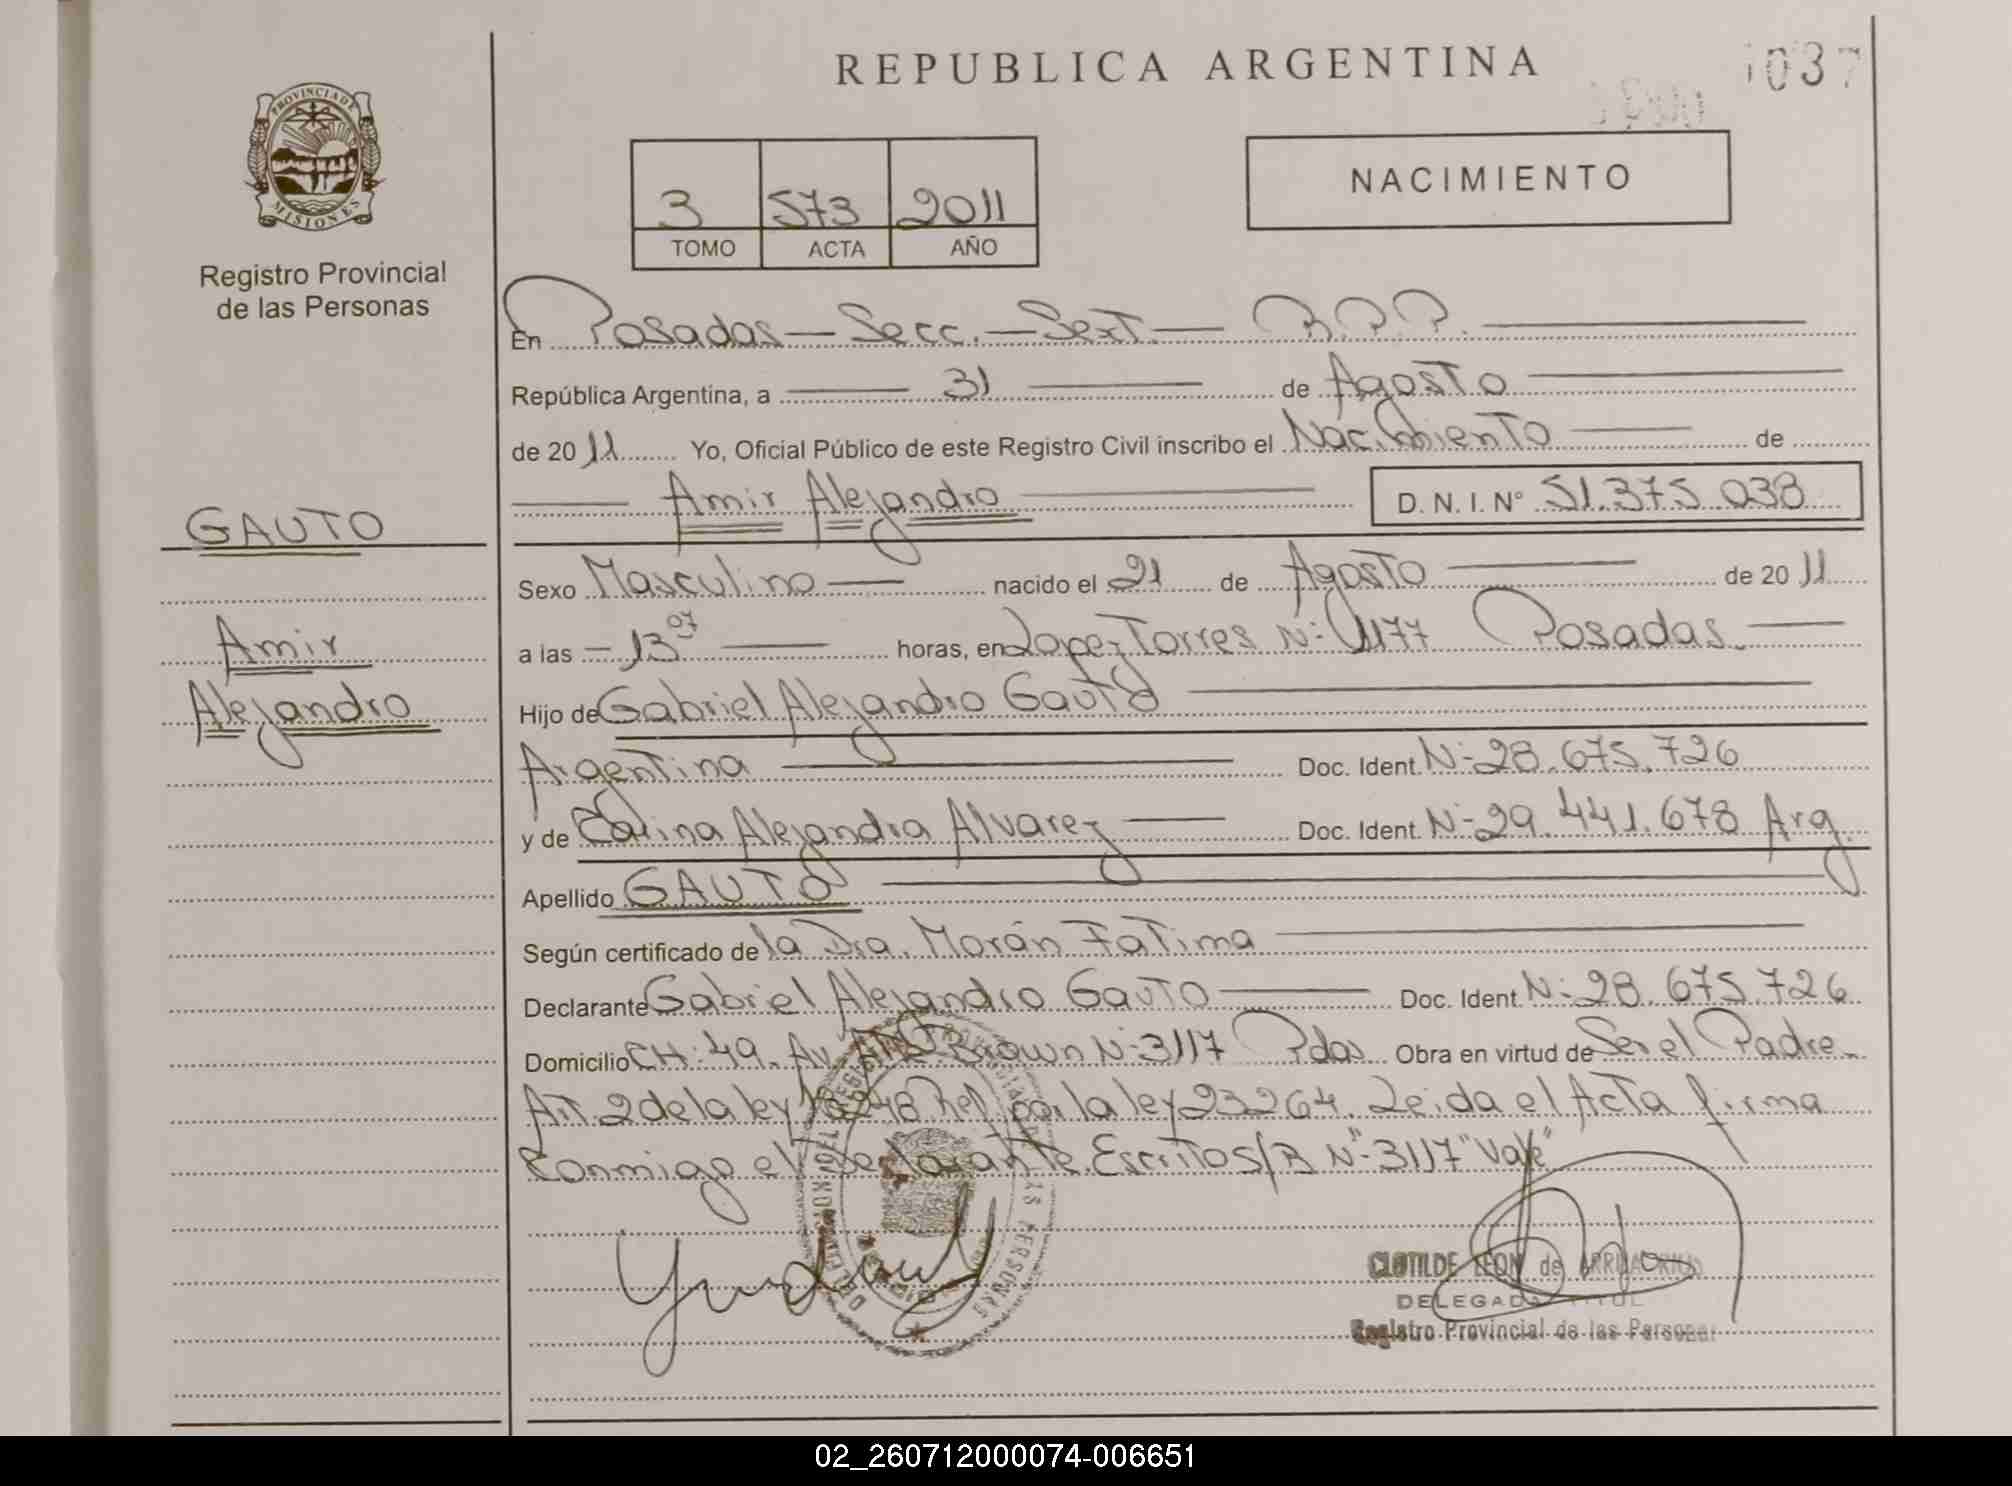 REPUBLICA ARGENTINA
1037
PROVINCIA DE
MISIONES
Registro Provincial
de las Personas
3 573 2011
TOMO ACTA AÑO
NACIMIENTO
En Posadas - Secc. - Sext. - R.P.P.
República Argentina, a 31 de Agosto
de 2011 Yo, Oficial Público de este Registro Civil inscribo el Nacimiento de
Amir Alejandro D. N. I. N° 51.375.038
GAUTO
Amir
Alejandro
Sexo Masculino nacido el 21 de Agosto de 2011
a las - 13 07 horas, en Lopez Torres N° 1177 Posadas
Hijo de Gabriel Alejandro Gauto
Argentina Doc. Ident. N° 28.675.726
y de Carina Alejandra Alvarez Doc. Ident. N° 29.441.678 Arg.
Apellido GAUTO
Según certificado de la Dra. Morán Fatima
Declarante Gabriel Alejandro Gauto Doc. Ident. N° 28.675.726
Domicilio CH: 49. Av. Brown N° 3117 Pdas Obra en virtud de Ser el Padre
Art. 2 de la ley 18248 Ref. por la ley 23264. Leida el Acta firma
Conmigo el Declarante. Escritos/R N° "3117" Vale"
CLOTILDE LEON de
DELEGADA TITUL
Registro Provincial de las Personas
02_260712000074-006651